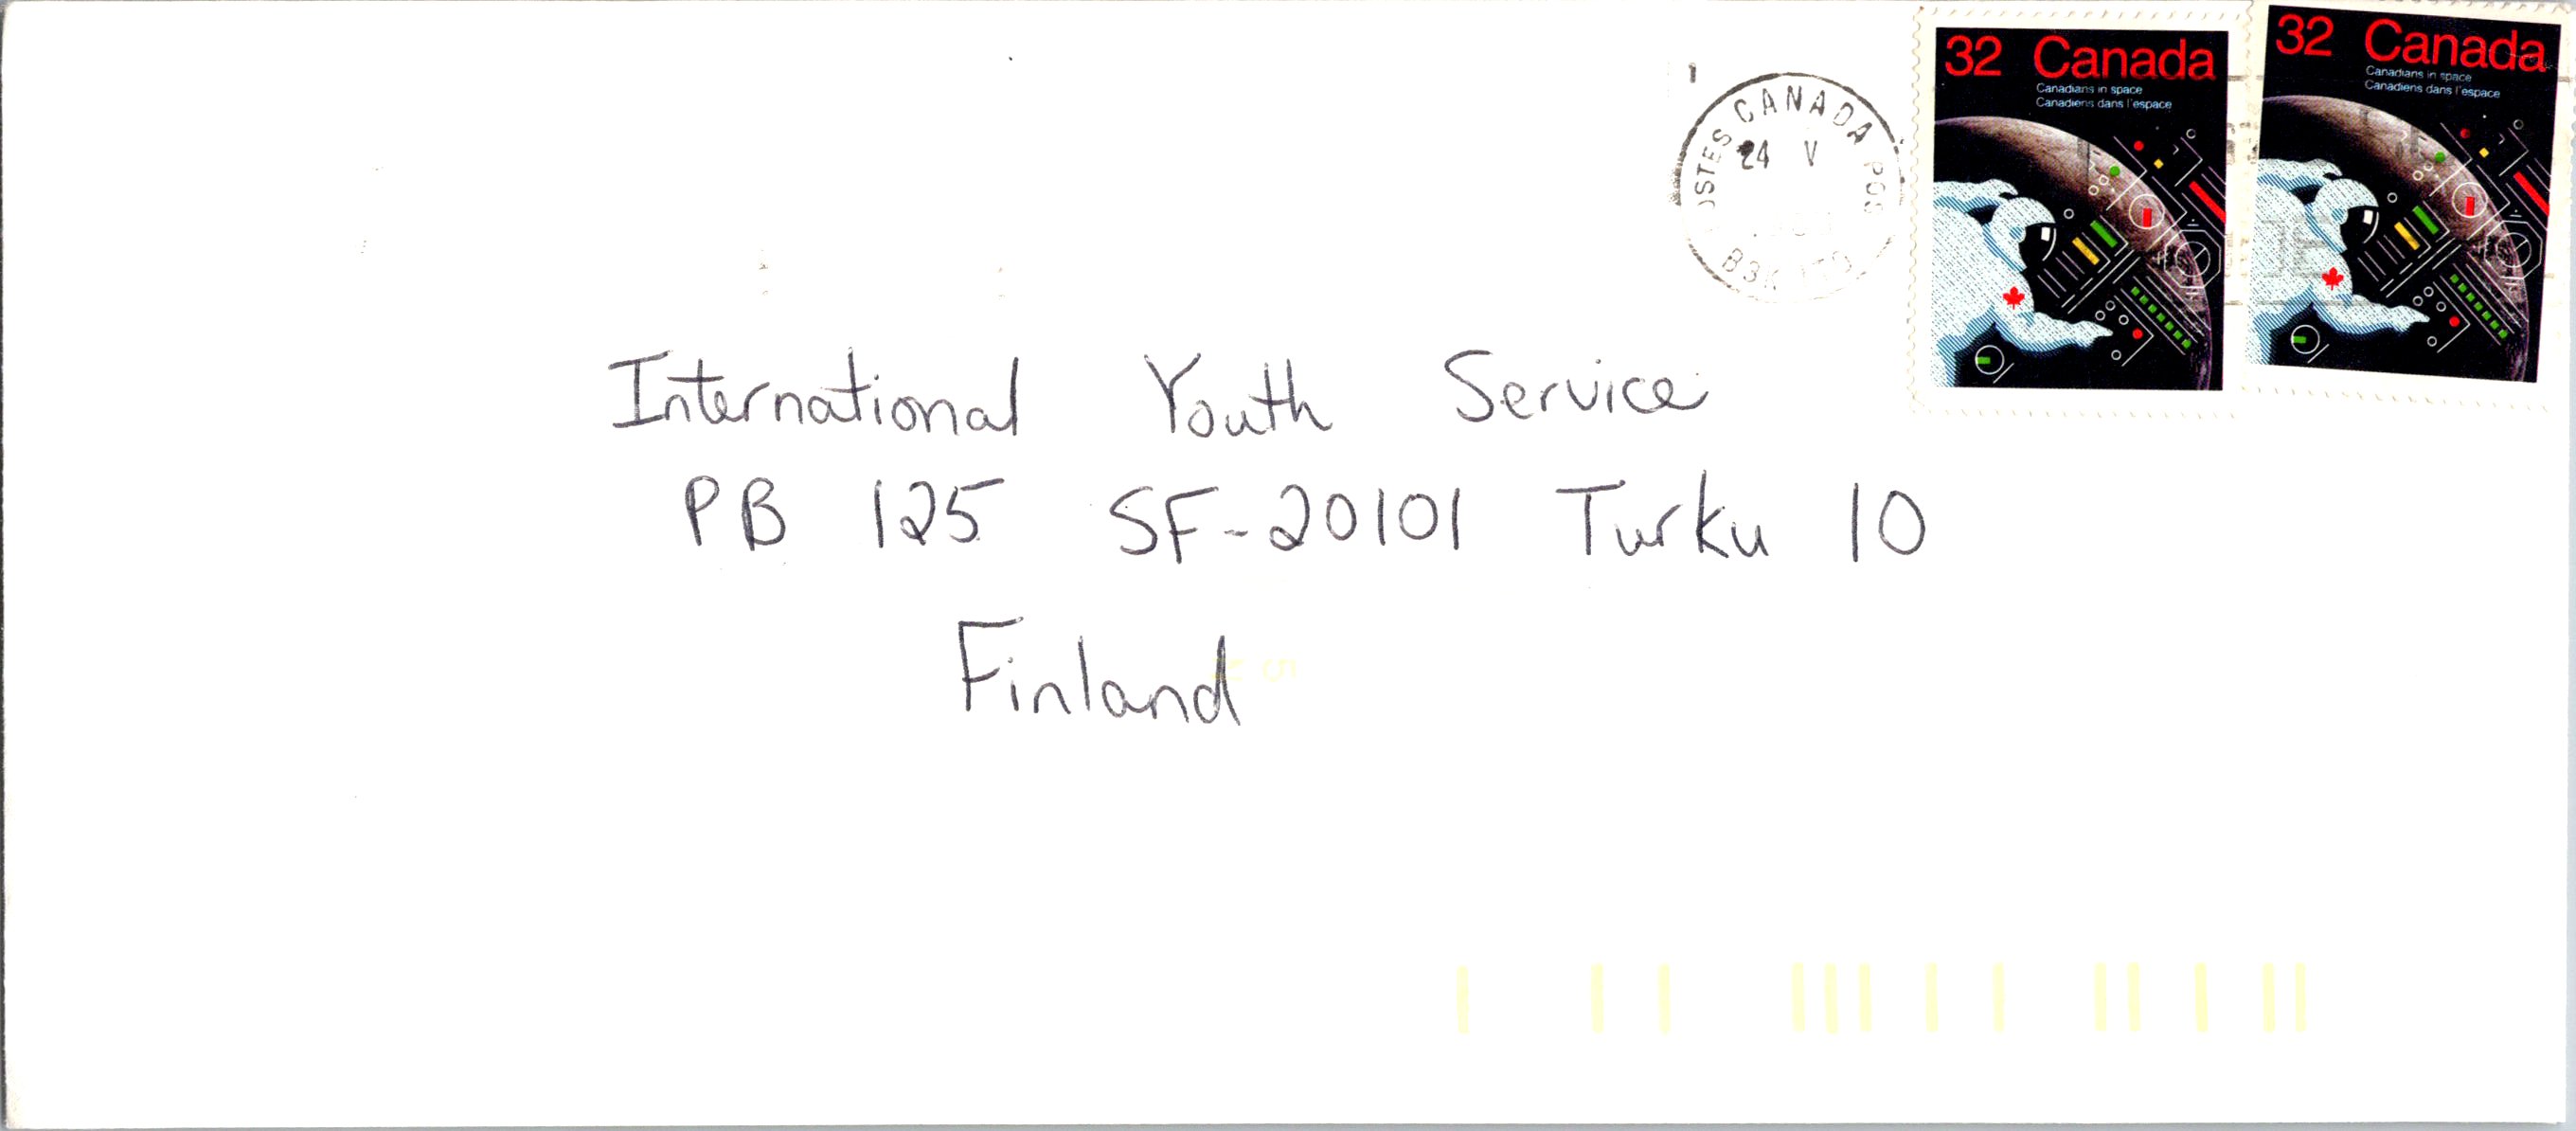 32 Canada
Canadians in space
Canadiens dans l'espace
32 Canada
Canadians in space
Canadiens dans l'espace
CANADA
24 V
B3K
International Youth Service
PB 125 SF-20101 Turku 10
Finland